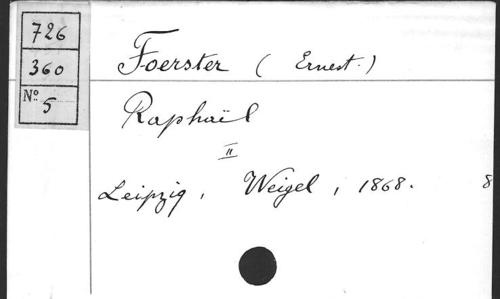 726
360
Nº 5
Foerster ( Ernest. )
Raphaël
II
Leipzig, Weigel, 1868. 8